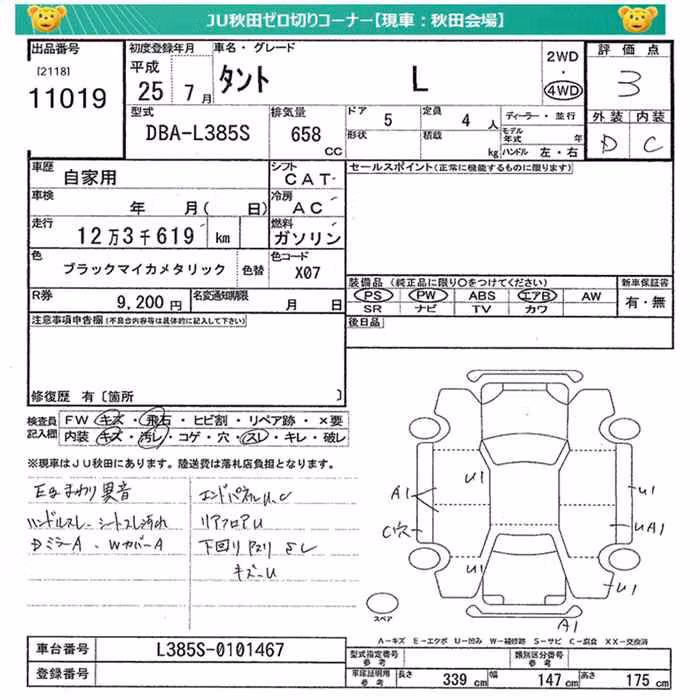 JU秋田ゼロ切りコーナー【現車：秋田会場】
出品番号 [2118] 11019
初度登録年月 平成 25年 7月
車名・グレード タント L
2WD・4WD
評価点 3
外装 D 内装 C
型式 DBA-L385S
排気量 658 CC
ドア 5 定員 4 人
形状 積載 kg
ディーラー・並行
モデル年式 年
ハンドル 左・右
車歴 自家用
シフト CAT
セールスポイント(正常に機能するものに限ります)
車検 年 月( 日)
冷房 AC
走行 12万3千619 km
燃料 ガソリン
色 ブラックマイカメタリック 色替
色コード X07
装備品(純正品に限り○をつけてください)
新車保証書 有・無
PS PW ABS エアB AW
SR ナビ TV カワ
R券 9,200円 名変通知期限 月 日
後日品
注意事項申告欄(不具合内容等は具体的に記入して下さい)
修復歴 有〔箇所 〕
検査員記入欄
FW キズ・飛石・ヒビ割・リペア跡・×要
内装 キズ・汚レ・コゲ・穴・スレ・キレ・破レ
※現車はJU秋田にあります。陸送費は落札店負担となります。
Egまわり異音
ハンドルスレ シートスレ汚れ
Dミラー A・WカバーA
エンドパネルU.C
リアフロアU
下回り
キズ-U
U1
A1
U1
C穴
UA1
U1
U1
A1
スペア
A-キズ E-エクボ U-凹み W-補修跡 S-サビ C-腐食 XX-交換済
車台番号 L385S-0101467
登録番号
型式指定番号 参考
類別区分番号 参考
車庫証明用 参考 長さ 339 cm 幅 147 cm 高さ 175 cm